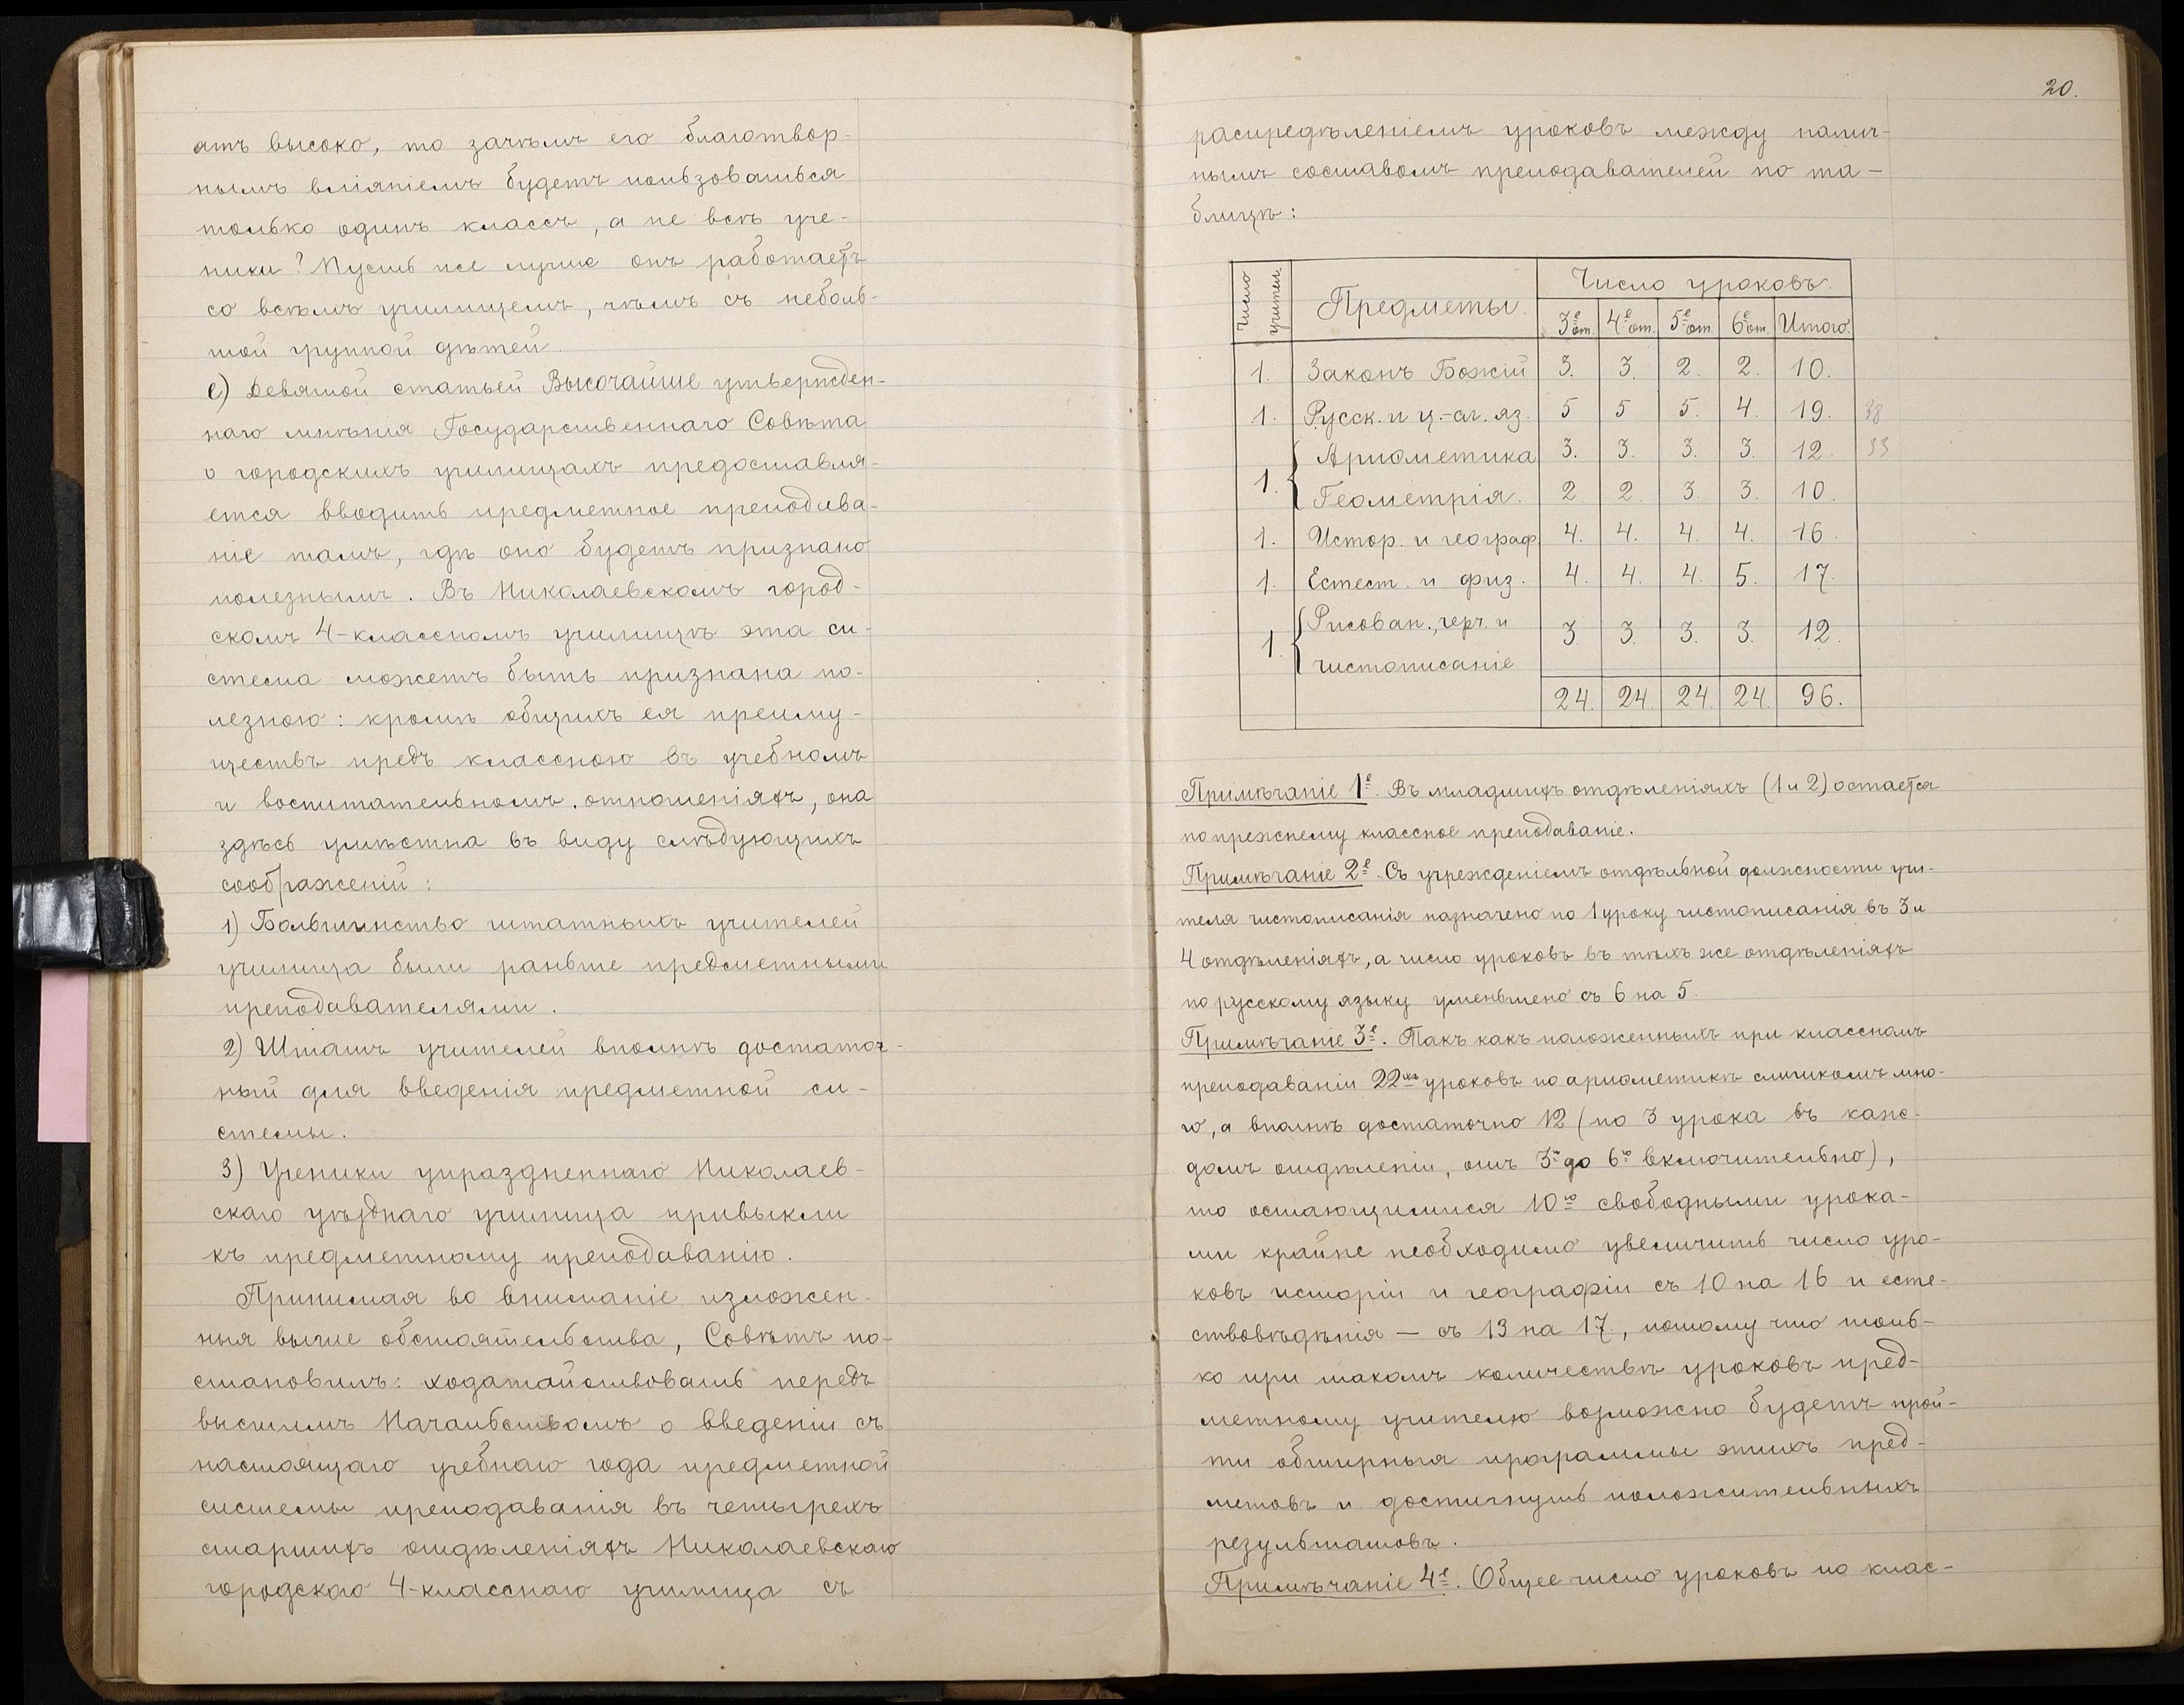 атъ высоко, то зачѣмъ его благотвор-
нымъ вліяніемъ будетъ пользоваться
только одинъ классъ, а не всѣ уче-
ники? Пусть же лучше онъ работаетъ
со всѣмъ училищемъ, чѣмъ съ неболь-
шой группой дѣтей.
е) Девятой статьей Высочайше утвержден-
наго мнѣнія Государственнаго Совѣта
о городскихъ училищахъ предоставля-
ется вводить предметное преподава-
ніе тамъ, гдѣ оно будетъ признано
полезнымъ. Въ Николаевскомъ город-
скомъ 4-классномъ училищѣ эта си-
стема можетъ быть признана по-
лезною: кромѣ общихъ ея преиму-
ществъ предъ классною въ учебномъ
и воспитательномъ отношеніяхъ, она
здѣсь умѣстна въ виду слѣдующихъ
соображеній:
1) Большинство штатныхъ учителей
училища были раньше предметными
преподавателями.
2) Штатъ учителей вполнѣ достаточ-
ный для введенія предметной си-
стемы.
3) Ученики упраздненнаго Николаев-
скаго уѣзднаго училища привыкли
къ предметному преподаванію.
Принимая во вниманіе изложен-
ныя выше обстоятельства, Совѣтъ по-
становилъ: ходатайствовать передъ
высшимъ Начальствомъ о введеніи съ
настоящаго учебнаго года предметной
системы преподаванія въ четырехъ
старшихъ отдѣленіяхъ Николаевскаго
городскаго 4-класснаго училища съ
20.
распредѣленіемъ уроковъ между налич-
нымъ составомъ преподавателей по та-
блицѣ:
Число учител. Предметы. Число уроковъ.
3е от. 4е от. 5е от. 6е от. Итого.
1. Законъ Божій 3. 3. 2. 2. 10.
1. Русск. и ц.-сл. яз. 5 5 5. 4. 19. 38
Ариѳметика 3. 3. 3. 3. 12. 33
1. Геометрія. 2. 2. 3. 3. 10.
1. Истор. и географ 4. 4. 4. 4. 16.
1. Естест. и физ. 4. 4. 4. 5. 17.
1. Рисован., черч. и 3. 3. 3. 3. 12.
чистописаніе
24. 24. 24. 24. 96.
Примѣчаніе 1е. Въ младшихъ отдѣленіяхъ (1 и 2) остается
по прежнему классное преподаваніе.
Примѣчаніе 2е. Съ учрежденіемъ отдѣльной должности учи-
теля чистописанія назначено по 1 уроку чистописанія въ 3 и
4 отдѣленіяхъ, а число уроковъ въ тѣхъ же отдѣленіяхъ
по русскому языку уменьшено съ 6 на 5.
Примѣчаніе 3е. Такъ какъ положенныхъ при классномъ
преподаваніи 22хъ уроковъ по ариѳметикѣ слишкомъ мно-
го, а вполнѣ достаточно 12 (по 3 урока въ каж-
домъ отдѣленіи, отъ 3го до 6го включительно),
то остающимися 10ю свободными урока-
ми крайне необходимо увеличить число уро-
ковъ исторіи и географіи съ 10 на 16 и есте-
ствовѣдѣнія — съ 13 на 17, потому что толь-
ко при такомъ количествѣ уроковъ пред-
метному учителю возможно будетъ прой-
ти обширныя программы этихъ пред-
метовъ и достигнуть положительныхъ
результатовъ.
Примѣчаніе 4е. Общее число уроковъ по клас-